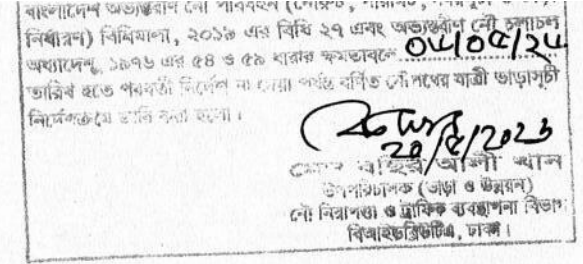 বাংলাদেশ অভ্যন্তরীণ নৌ
নির্ধারণ) বিধিমালা, ২০১৯ এর বিধি ২৭ এবং অভ্যন্তরীণ নৌ চলাচল
অধ্যাদেশ, ১৯৭৬ এর ৫৪ ও ৫৯ ধারার ক্ষমতাবলে
তারিখ হতে পরবর্তী নির্দেশ না দেয়া পর্যন্ত বর্ণিত নৌ পথের যাত্রী ভাড়াসূচী
নির্দেশক্রমে জারি করা হলো।
২০/৫/২০২৩
আলী খান
উপপরিচালক (ভাড়া ও উন্নয়ন)
নৌ নিরাপত্তা ও ট্রাফিক ব্যবস্থাপনা বিভাগ
বিআইডব্লিউটিএ, ঢাকা।